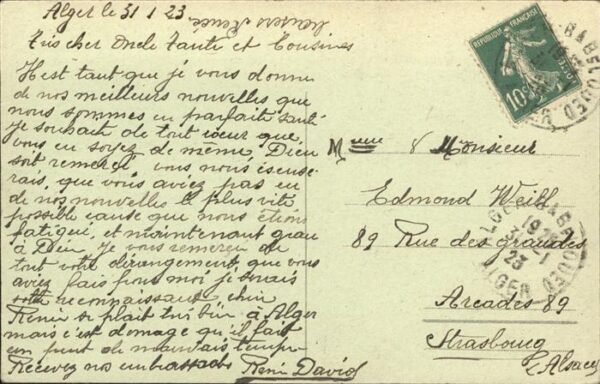 Alger le 31 1 23
Très cher Oncle Tante et Cousines
Il est tant que je vous donne
de nos meilleures nouvelles que
nous sommes en parfaite santé
Je souhaite de tout cœur que
vous en soyez de même, Dieu
soit remercié vous nous excuse-
rais, que vous aviez pas eu
de nos nouvelles le plus vite
possible cause que nous étions
fatigué, et maintenant grau
à Dieu, Je vous remercie de
tout votre dérangement que vous
aviez fais pour moi je serais
reconnaissant cher
Renée se plait très bien à Alger
mais c'est domage qu'il fait
un peut de mauvais temps
Recevez nos embrassades René David
REPUBLIQUE FRANÇAISE
10c
BAB EL OUED
Mme & Monsieur
Edmond Weill
89 Rue des grandes
Arcades 89
Strasbourg
(Alsace)
BAB EL OUED
31-1
23
ALGER